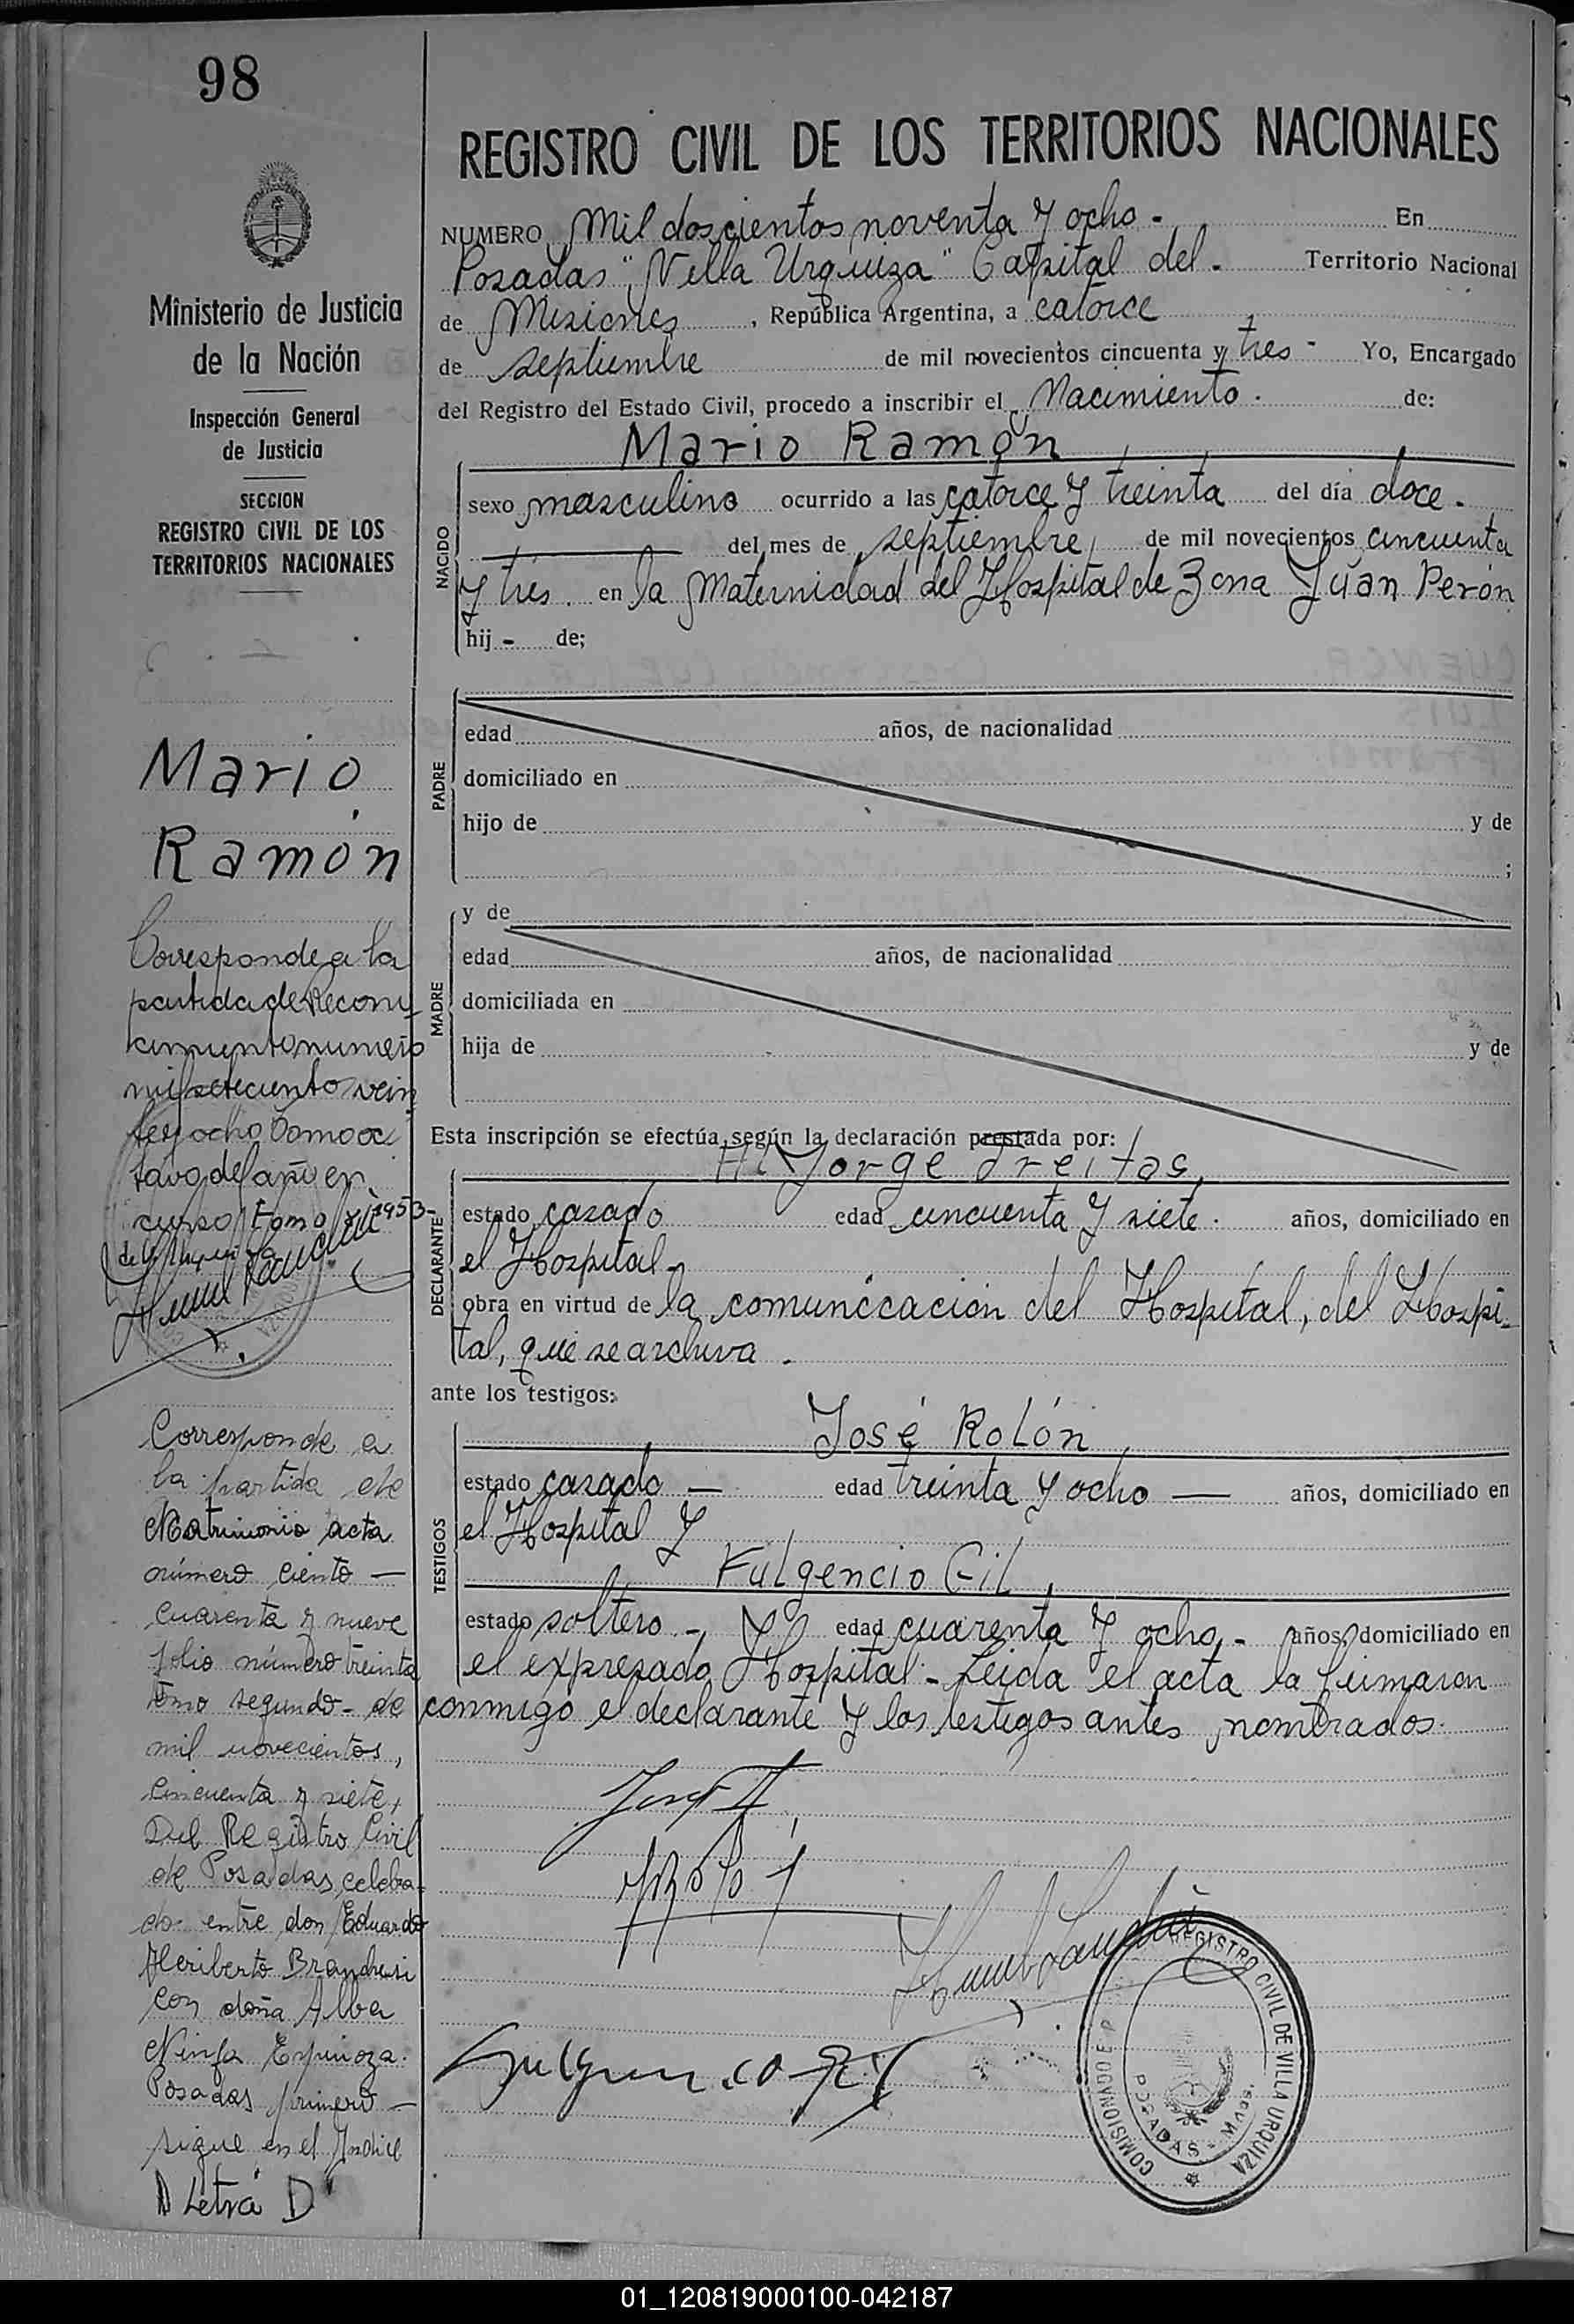 98
REGISTRO CIVIL DE LOS TERRITORIOS NACIONALES
Ministerio de Justicia
de la Nación
Inspección General
de Justicia
SECCION
REGISTRO CIVIL DE LOS
TERRITORIOS NACIONALES
NUMERO Mil doscientos noventa y ocho - En
Posadas "Villa Urquiza" Capital del. Territorio Nacional
de Misiones, República Argentina, a catorce
de septiembre de mil novecientos cincuenta y tres - Yo, Encargado
del Registro del Estado Civil, procedo a inscribir el Nacimiento. de:
Mario Ramón
NACIDO
sexo masculino ocurrido a las catorce y treinta del día doce.
del mes de septiembre, de mil novecientos cincuenta
y tres. en la Maternidad del Hospital de Zona Juan Perón
hij - de;
PADRE
edad años, de nacionalidad
domiciliado en
hijo de y de
;
MADRE
y de
edad años, de nacionalidad
domiciliada en
hija de y de
Esta inscripción se efectúa según la declaración prestada por:
DECLARANTE
Jorge Freitas,
estado casado edad cincuenta y siete. años, domiciliado en
el Hospital -
obra en virtud de la comunicación del Hospital, del Hospi-
tal, que se archiva.
ante los testigos:
TESTIGOS
José Rolón,
estado casado — edad treinta y ocho — años, domiciliado en
el Hospital y
Fulgencio Gil,
estado soltero -, y edad cuarenta y ocho, - años, domiciliado en
el expresado Hospital - Leida el acta la firmaron
conmigo el declarante y los testigos antes nombrados.
Mario
Ramón
Corresponde a la
partida de Recono
cimiento numero
mil setecientos vein
tiocho Tomo oc
tavo del año en
curso Tomo 1953-
Corresponde a
la partida de
Matrimonio acta
número ciento —
cuarenta y nueve
folio número treinta
tomo segundo - de
mil novecientos,
cincuenta y siete,
Del Registro Civil
de Posadas, celebra-
do entre don Eduardo
Heriberto Brandusi
con doña Alba
Ninfa Espinoza.
Posadas primero —
sigue en el Indice
Letra "D"
REGISTRO CIVIL DE VILLA URQUIZA
COMISIONADO
POSADAS - Mnes.
01_120819000100-042187